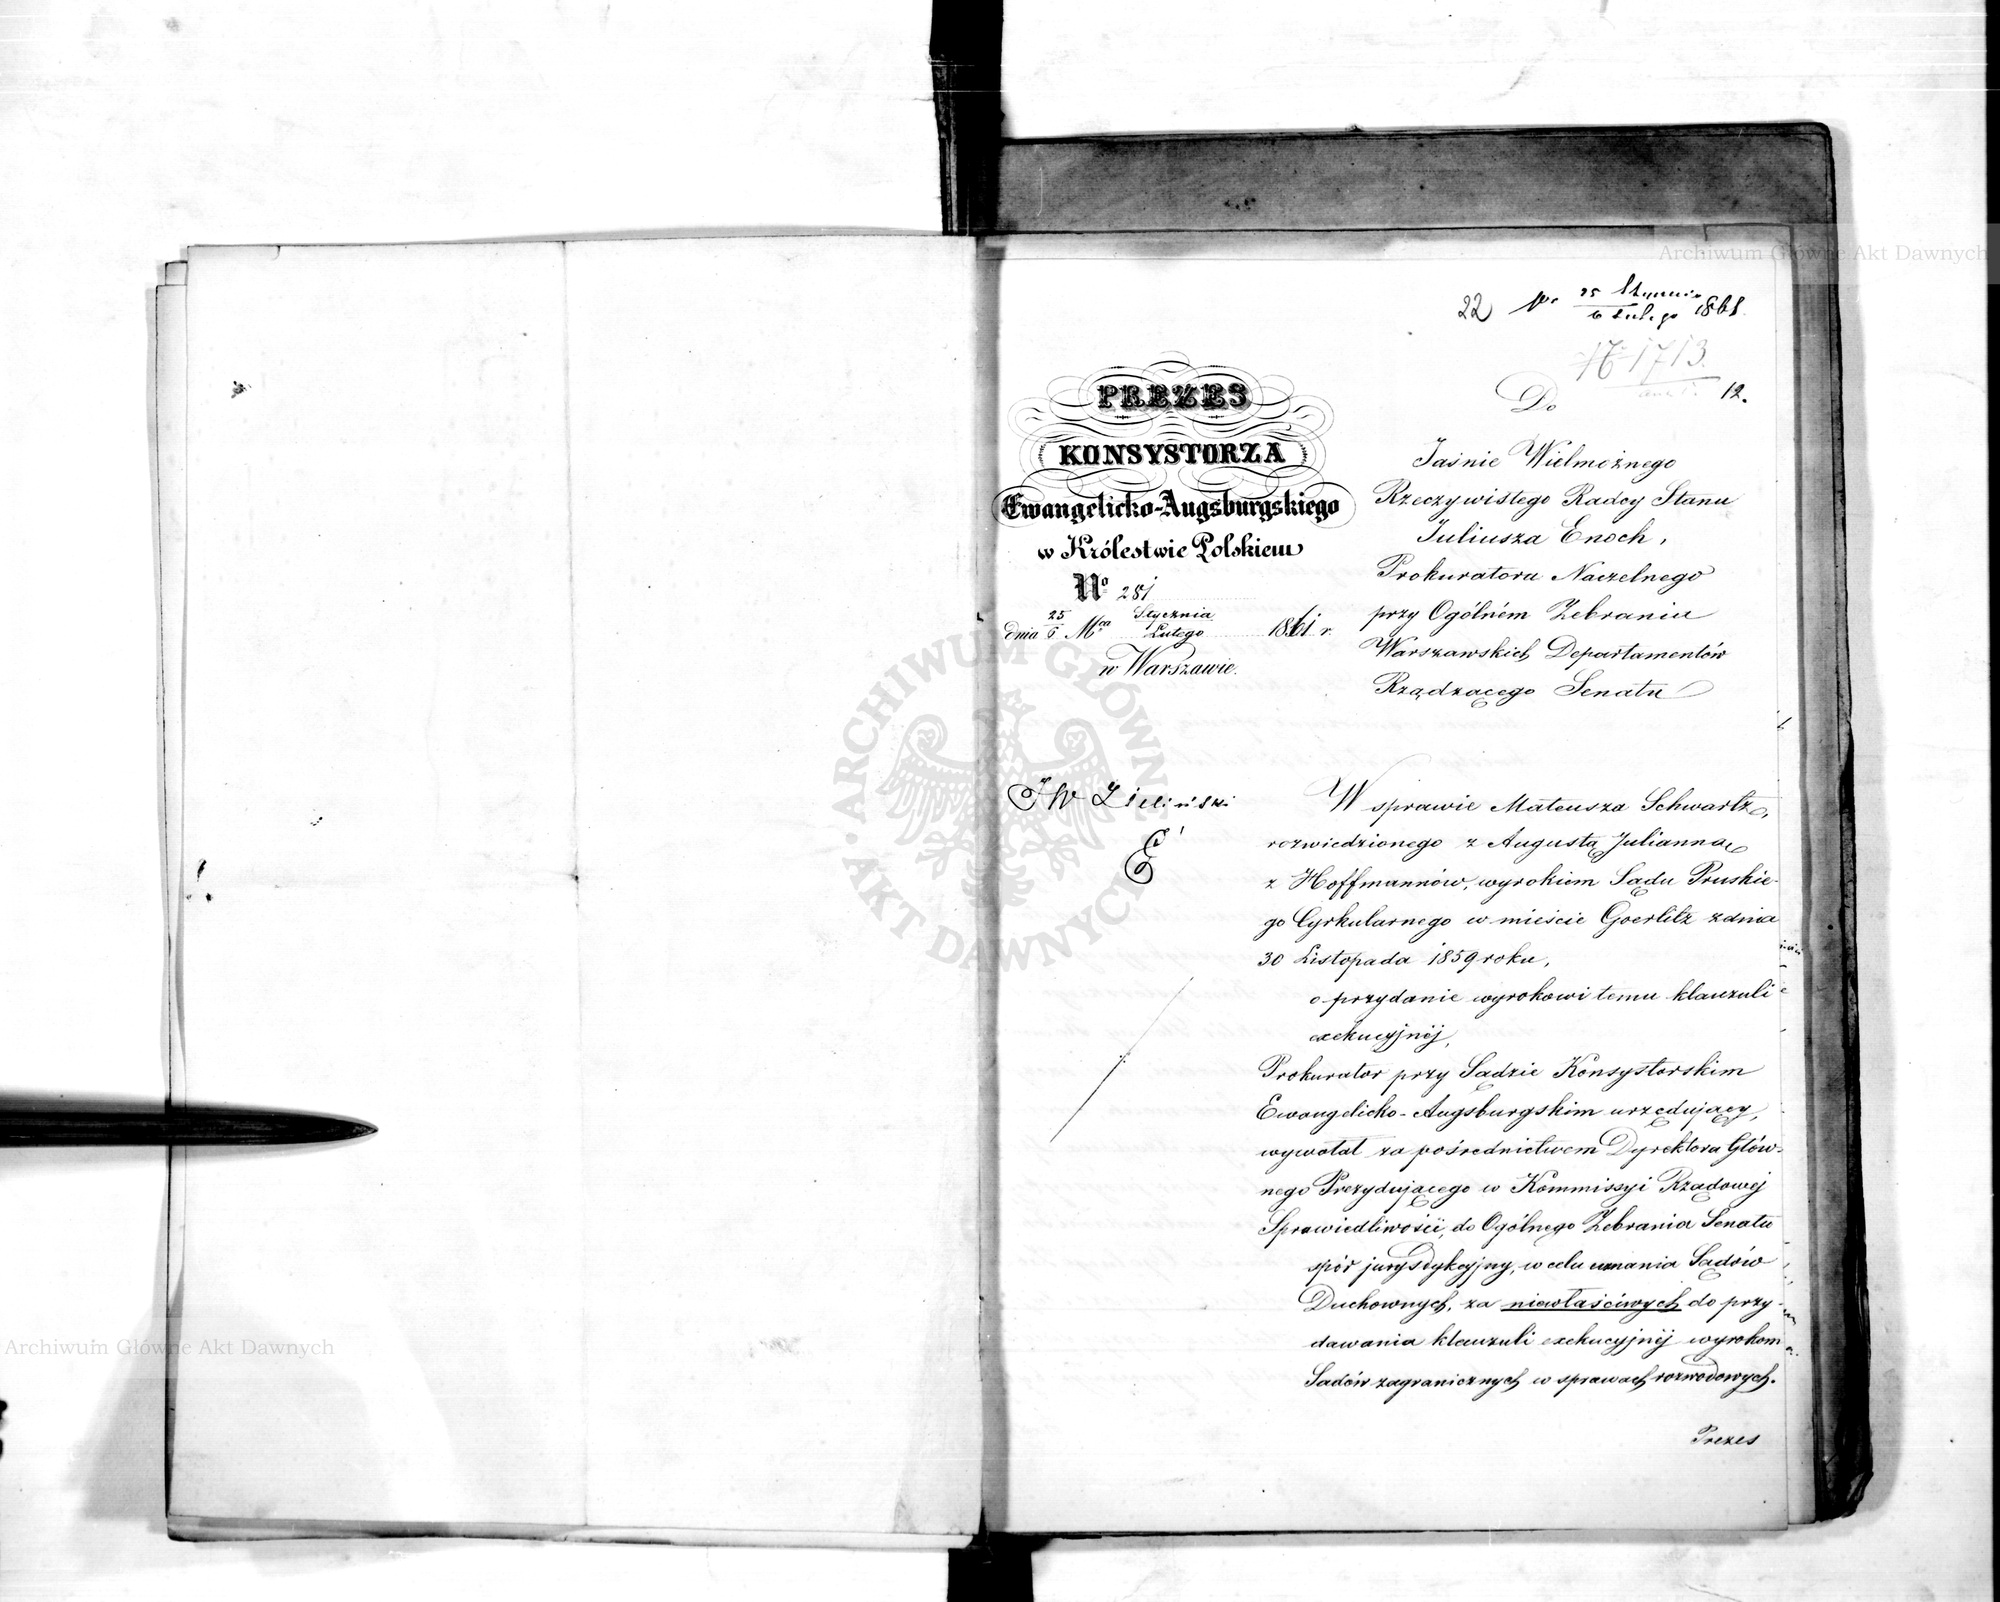 22 pr. 25 Stycznia / 6 Lutego 1861.
1713.
12.
PREZES
KONSYSTORZA
Ewangelicko-Augsburgskiego
w Królestwie Polskiem
No 281
dnia 25/6 Mca Stycznia/Lutego 1861 r.
w Warszawie.
Do
Jaśnie Wielmożnego
Rzeczywistego Radcy Stanu
Juliusza Enoch,
Prokuratora Naczelnego
przy Ogólném Zebraniu
Warszawskich Departamentów
Rządzącego Senatu
JW Zieliński
E
W sprawie Mateusza Schwartz,
rozwiedzionego z Augustą Julianną
z Hoffmannów, wyrokiem Sądu Pruskie-
go Cyrkularnego w mieście Goerlitz z dnia
30 Listopada 1859 roku,
o przydanie wyrokowi temu klauzuli
exekucyjnéj,
Prokurator przy Sądzie Konsystorskim
Ewangelicko-Augsburgskim urzędujący,
wywołał za pośrednictwem Dyrektora Głów-
nego Prezydującego w Kommissyi Rządowéj
Sprawiedliwości, do Ogólnego Zebrania Senatu
spór jurysdykcyjny, w celu uznania Sądów
Duchownych, za niewłaściwych do przy-
dawania klauzuli exekucyjnéj wyrokom
Sądów zagranicznych w sprawach rozwodowych.
Prezes
ARCHIWUM GŁÓWNE AKT DAWNYCH
Archiwum Główne Akt Dawnych
Archiwum Główne Akt Dawnych